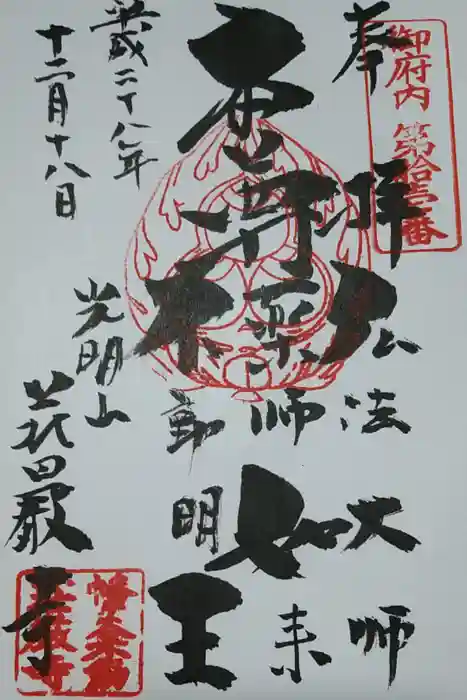 御府内第拾壱番
奉拝
弘法大師
本尊
薬師如来
不動明王
平成二十八年
十二月十八日
光明山
荘嚴寺